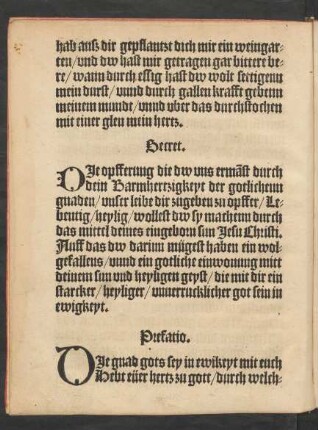 hab auß dir gepflantzt dich mir ein weingar-
ten/vnd dw hast mir getragen gar bittere be-
re/wann durch essig hast dw wolt settigenn
mein durst/vnnd durch gallen krafft gebenn
meinem munde/vnnd vber das durchstochen
mit einer glen mein hertz.
Secret.
DIe opfferung die dw vns ermãst durch
dein Barmhertzigkeyt der gotlichenn
gnaden/vnser leibe dir zugeben zu opffer/Le-
bentig/heylig/wollest dw sy machenn durch
das mittel deines eingeborn sun Jesu Christi.
Auff das dw darinn mügest haben ein wol-
gefallens/vnnd ein gotliche einwonung mitt
deinem sun vnd heyligen geyst/die mit dir ein
starcker/heyliger/vnuerrucklicher got sein in
ewigkeyt.
Prefatio.
DIe gnad gots sey in ewikeyt mit euch
Hebt eüer hertz zu gott/durch welch-